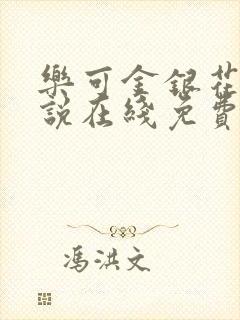 樂可金銀花
說在綫免費
馮洪文